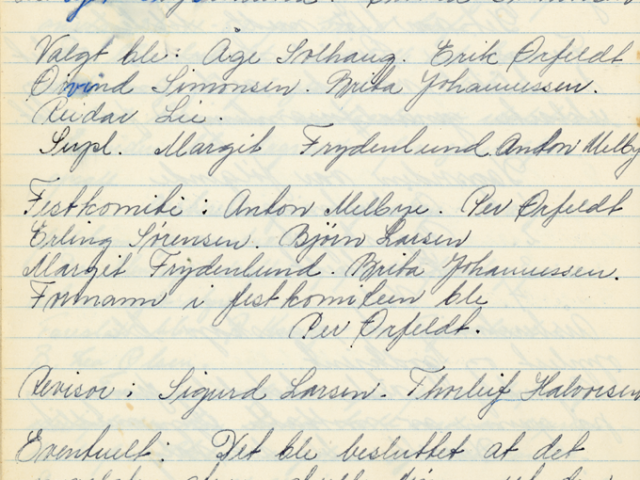 Valgt ble: Åge Solhaug. Erik Ørfeldt
Øivind Simonsen. Brita Johannessen.
Reidar Lie.
Supl. Margit Frydenlund Anton Melby
Festkomite: Anton Melbye. Per Ørfeldt
Erling Sørensen. Bjørn Larsen
Margit Frydenlund. Brita Johannessen.
Formann i festkomiteen ble
Per Ørfeldt.
Revisor: Sigurd Larsen. Thorleif Halvorsen
Eventuelt: Det ble besluttet at det